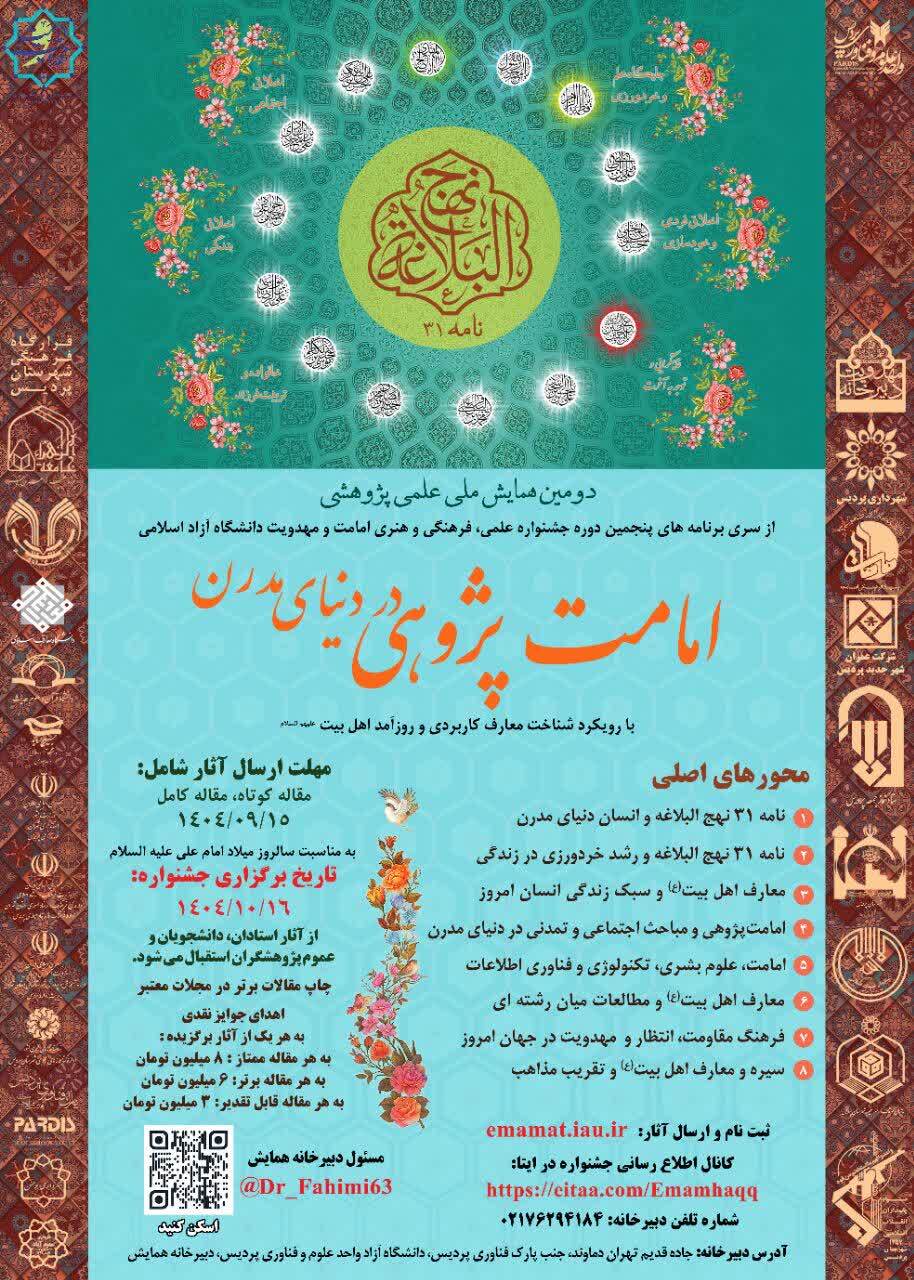 نهج
البلاغة
نامه ۳۱
اخلاق
اجتماعی
اخلاق
بندگی
خانواده و
تربیت فرزند
جایگاه علم
و خردورزی
اخلاق فردی
و خودسازی
دومین همایش ملی علمی پژوهشی
از سری برنامه های پنجمین دوره جشنواره علمی، فرهنگی و هنری امامت و مهدویت دانشگاه آزاد اسلامی
امامت پژوهی در دنیای مدرن
با رویکرد شناخت معارف کاربردی و روزآمد اهل بیت علیهم السلام
محورهای اصلی
۱ نامه ۳۱ نهج البلاغه و انسان دنیای مدرن
۲ نامه ۳۱ نهج البلاغه و رشد خردورزی در زندگی
۳ معارف اهل بیت(ع) و سبک زندگی انسان امروز
۴ امامت‌پژوهی و مباحث اجتماعی و تمدنی در دنیای مدرن
۵ امامت، علوم بشری، تکنولوژی و فناوری اطلاعات
۶ معارف اهل بیت(ع) و مطالعات میان رشته ای
۷ فرهنگ مقاومت، انتظار و مهدویت در جهان امروز
۸ سیره و معارف اهل بیت(ع) و تقریب مذاهب
مهلت ارسال آثار شامل:
مقاله کوتاه، مقاله کامل
۱۴۰۴/۰۹/۱۵
به مناسبت سالروز میلاد امام علی علیه السلام
تاریخ برگزاری جشنواره:
۱۴۰۴/۱۰/۱۶
از آثار استادان، دانشجویان و
عموم پژوهشگران استقبال می‌شود.
چاپ مقالات برتر در مجلات معتبر
اهدای جوایز نقدی
به هر یک از آثار برگزیده :
به هر مقاله ممتاز : ۸ میلیون تومان
به هر مقاله برتر: ۶ میلیون تومان
به هر مقاله قابل تقدیر: ۳ میلیون تومان
ثبت نام و ارسال آثار: emamat.iau.ir
کانال اطلاع رسانی جشنواره در ایتا:
https://eitaa.com/Emamhaqq
شماره تلفن دبیرخانه: ۰۲۱۷۶۲۹۴۱۸۴
مسئول دبیرخانه همایش
@Dr_Fahimi63
اسکن کنید
آدرس دبیرخانه: جاده قدیم تهران دماوند، جنب پارک فناوری پردیس، دانشگاه آزاد واحد علوم و فناوری پردیس، دبیرخانه همایش
قرارگاه
فرهنگی
شهرستان
پردیس
PARDIS
PARDIS
دبیرخانه
شهرداری پردیس
شرکت عمران
شهر جدید پردیس